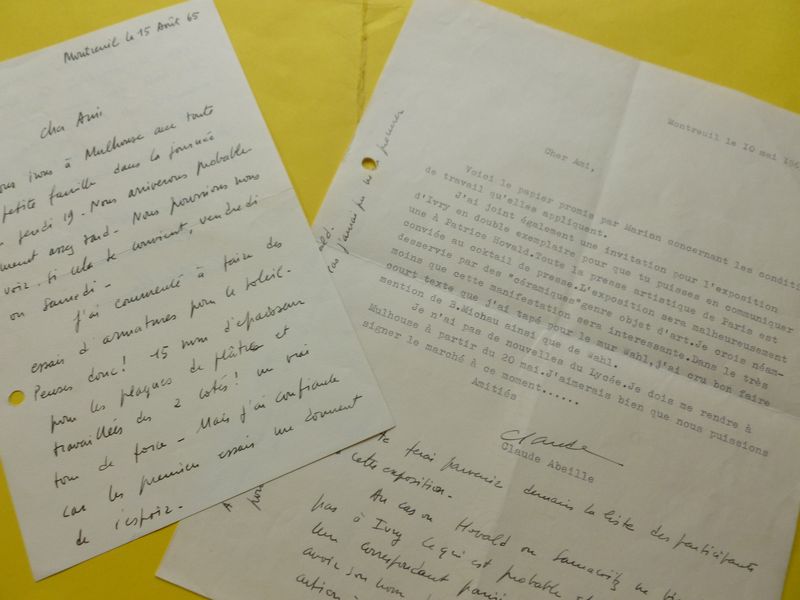 Montreuil le 15 Août 65
Cher Ami
nous irons à Mulhouse avec toute
petite famille dans la journée
jeudi 19 - Nous arriverons probable
ment assez tard - Nous pourrions nous
voir, si cela te convient, vendredi
ou samedi -
J'ai commencé à faire des
essais d'armatures pour le soleil -
Penses donc! 15 mm d'épaisseur
pour les plaques de plâtre et
travaillées des 2 cotés! un vrai
tour de force - Mais j'ai confiance
car les premiers essais me donnent
de l'espoir -
Montreuil le 10 mai 196
Cher Ami,
Voici le papier promis par Marion concernant les conditi
de travail qu'elles appliquent.
J'ai joint également une invitation pour l'exposition
d'Ivry en double exemplaire pour que tu puisses en communiquer
une à Patrice Hovald.Toute la presse artistique de Paris est
conviée au coktail de presse.L'exposition sera malheureusement
desservis par des "céramiques"genre objet d'art.Je crois néam-
moins que cette manifestation sera interessante.Dans le très
court texte que j'ai tapé pour le mur Wahl,j'ai cru bon faire
mention de B.Michau ainsi que de Wahl.
Je n'ai pas de nouvelles du Lycée.Je dois me rendre à
Mulhouse à partir du 20 mai.J'aimerais bien que nous puissions
signer le marché à ce moment......
Amitiés
Claude
Claude Abeille
te ferai parvenir demain la liste des participants
cette exposition.
Au cas où Hovald ou
pas à Ivry ce qui est probable
leur correspondant
avoir son nom